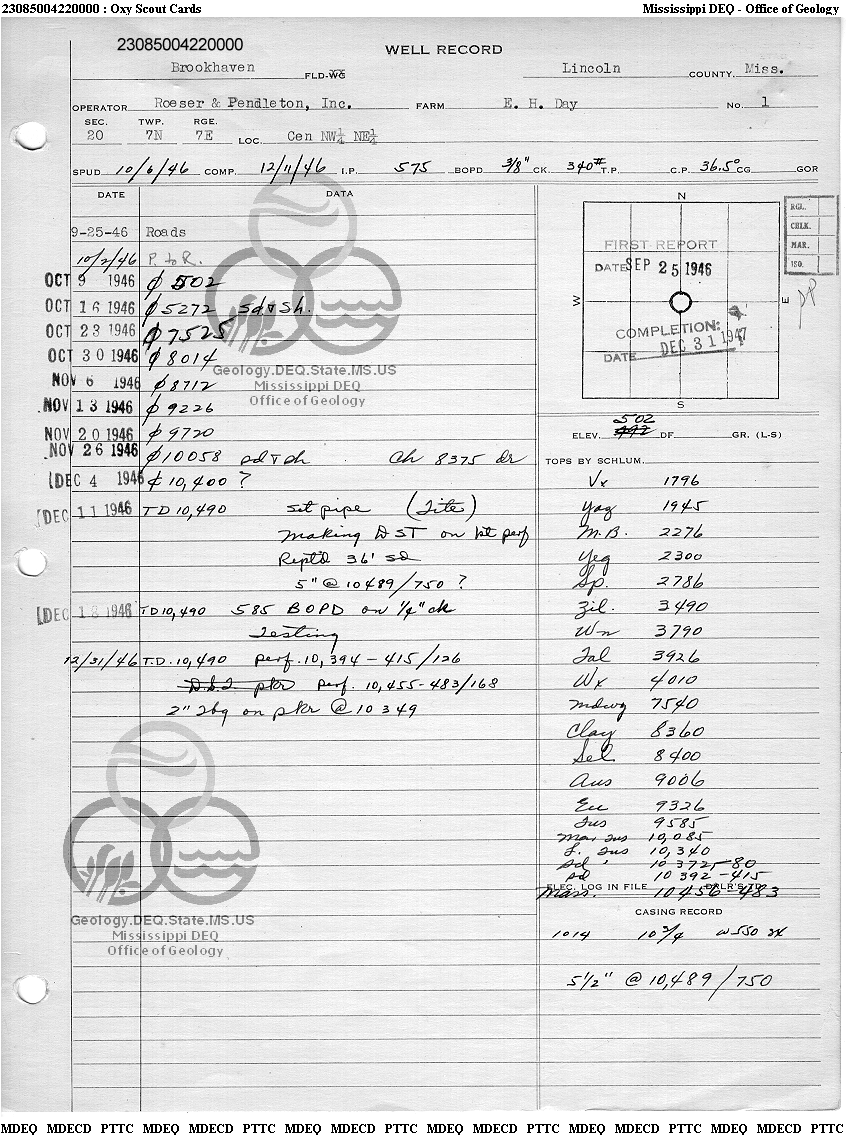 23085004220000 : Oxy Scout Cards Mississippi DEQ - Office of Geology
23085004220000
WELL RECORD
Brookhaven FLD-WC Lincoln COUNTY, Miss.
OPERATOR Roeser & Pendleton, Inc. FARM E. H. Day No. 1
SEC. TWP. RGE.
20 7N 7E LOC. Cen NW¼ NE¼
SPUD 10/6/46 COMP. 12/11/46 I.P. 575 BOPD 3/8" CK. 340# T.P. C.P. 36.5° CG GOR
DATE DATA
9-25-46 Roads
10/2/46 P. to R.
OCT 9 1946 ϕ 502
OCT 16 1946 ϕ 5272 Sd & Sh.
OCT 23 1946 ϕ 7525
OCT 30 1946 ϕ 8014
NOV 6 1946 ϕ 8712
NOV 13 1946 ϕ 9226
NOV 20 1946 ϕ 9720
NOV 26 1946 ϕ 10058 sd & sh Ch 8375 dr
DEC 4 1946 ¢ 10,400 ?
DEC 11 1946 TD 10,490 set pipe (Tite)
making DST on 1st perf
Rept'd 36' sd
5" @ 10489/750 ?
DEC 18 1946 TD 10,490 585 BOPD on 1/4" ck
Testing
12/31/46 T.D. 10,490 perf. 10,394-415/126
D.S.T. pkr perf. 10,455-483/168
2" tbg on pkr @ 10349
Geology.DEQ.State.MS.US
Mississippi DEQ
Office of Geology
Geology.DEQ.State.MS.US
Mississippi DEQ
Office of Geology
N
W
E
S
FIRST REPORT
DATE SEP 25 1946
COMPLETION:
DATE DEC 31 1947
RGL.
CHLK.
MAR.
ISO.
502
ELEV. 492 DF. GR. (L-S)
TOPS BY SCHLUM.
Vx 1796
Yaz 1945
M.B. 2276
Yeg 2300
Sp. 2786
Zil. 3490
Wn 3790
Tal 3926
Wx 4010
mdwy 7540
Clay 8360
Sel 8400
Aus 9006
Eu 9326
Tus 9585
Mar Tus 10,085
L. Tus 10,340
sd 10372-80
sd 10392-415
ELEC. LOG IN FILE DRLR'S TD
Mass. 10456-483
CASING RECORD
1014 10 3/4 w 550 sx
5 1/2" @ 10,489/750
MDEQ MDECD PTTC MDEQ MDECD PTTC MDEQ MDECD PTTC MDEQ MDECD PTTC MDEQ MDECD PTTC MDEQ MDECD PTTC